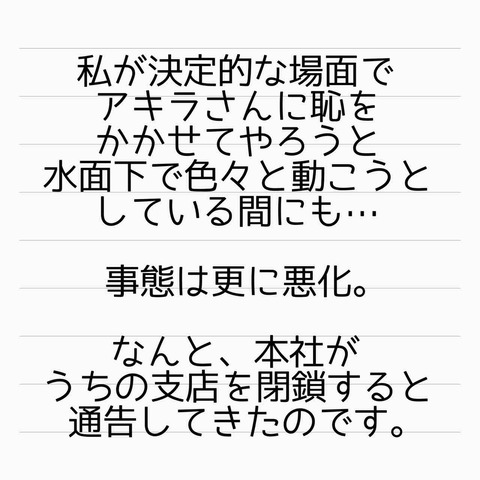 私が決定的な場面で
アキラさんに恥を
かかせてやろうと
水面下で色々と動こうと
している間にも…
事態は更に悪化。
なんと、本社が
うちの支店を閉鎖すると
通告してきたのです。